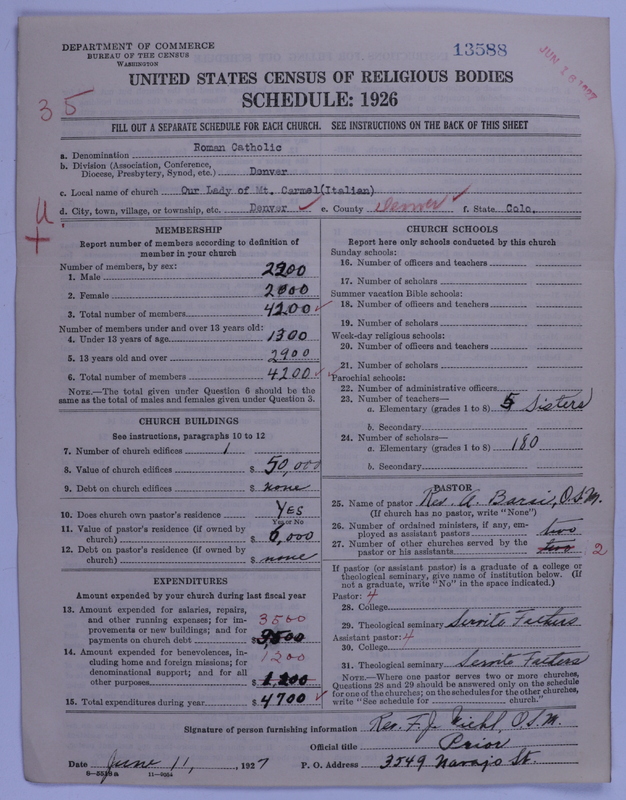 DEPARTMENT OF COMMERCE
BUREAU OF THE CENSUS
WASHINGTON
13588
35
UNITED STATES CENSUS OF RELIGIOUS BODIES
SCHEDULE: 1926
FILL OUT A SEPARATE SCHEDULE FOR EACH CHURCH. SEE INSTRUCTIONS ON THE BACK OF THIS SHEET
a. Denomination Roman Catholic
b. Division (Association, Conference,
Diocese, Presbytery, Synod, etc.) Denver
c. Local name of church Our Lady of Mt. Carmel(Italian)
d. City, town, village, or township, etc. Denver e. County Denver f. State Colo.
MEMBERSHIP
Report number of members according to definition of
member in your church
Number of members, by sex:
1. Male 2200
2. Female 2000
3. Total number of members 4200
Number of members under and over 13 years old:
4. Under 13 years of age 1300
5. 13 years old and over 2900
6. Total number of members 4200
NOTE.—The total given under Question 6 should be the
same as the total of males and females given under Question 3.
CHURCH BUILDINGS
See instructions, paragraphs 10 to 12
7. Number of church edifices 1
8. Value of church edifices $ 50,000
9. Debt on church edifices $ none
10. Does church own pastor's residence? Yes
Yes or No
11. Value of pastor's residence (if owned by
church) $ 6,000
12. Debt on pastor's residence (if owned by
church) $ none
EXPENDITURES
Amount expended by your church during last fiscal year
13. Amount expended for salaries, repairs,
and other running expenses; for im- 3500
provements or new buildings; and for
payments on church debt $ 3500
14. Amount expended for benevolences, in- 1200
cluding home and foreign missions; for
denominational support; and for all
other purposes $ 1,200
15. Total expenditures during year $ 4700
CHURCH SCHOOLS
Report here only schools conducted by this church
Sunday schools:
16. Number of officers and teachers
17. Number of scholars
Summer vacation Bible schools:
18. Number of officers and teachers
19. Number of scholars
Week-day religious schools:
20. Number of officers and teachers
21. Number of scholars
Parochial schools:
22. Number of administrative officers
23. Number of teachers—
a. Elementary (grades 1 to 8) 5 Sisters
b. Secondary
24. Number of scholars—
a. Elementary (grades 1 to 8) 180
b. Secondary
PASTOR
25. Name of pastor Rev. A. , O.S.M.
(If church has no pastor, write "None")
26. Number of ordained ministers, if any, em-
ployed as assistant pastors two
27. Number of other churches served by the
pastor or his assistants two 2
If pastor (or assistant pastor) is a graduate of a college or
theological seminary, give name of institution below. (If
not a graduate, write "No" in the space indicated.)
Pastor: 4
28. College
29. Theological seminary Servite Fathers
Assistant pastor: 4
30. College
31. Theological seminary Servite Fathers
NOTE.—Where one pastor serves two or more churches,
Questions 28 and 29 should be answered only on the schedule
for one of the churches; on the schedules for the other churches,
write "See schedule for church."
Signature of person furnishing information Rev. F. J. , O.S.M.
Official title Prior
Date June 11, 1927 P. O. Address 3549 Navajo St.